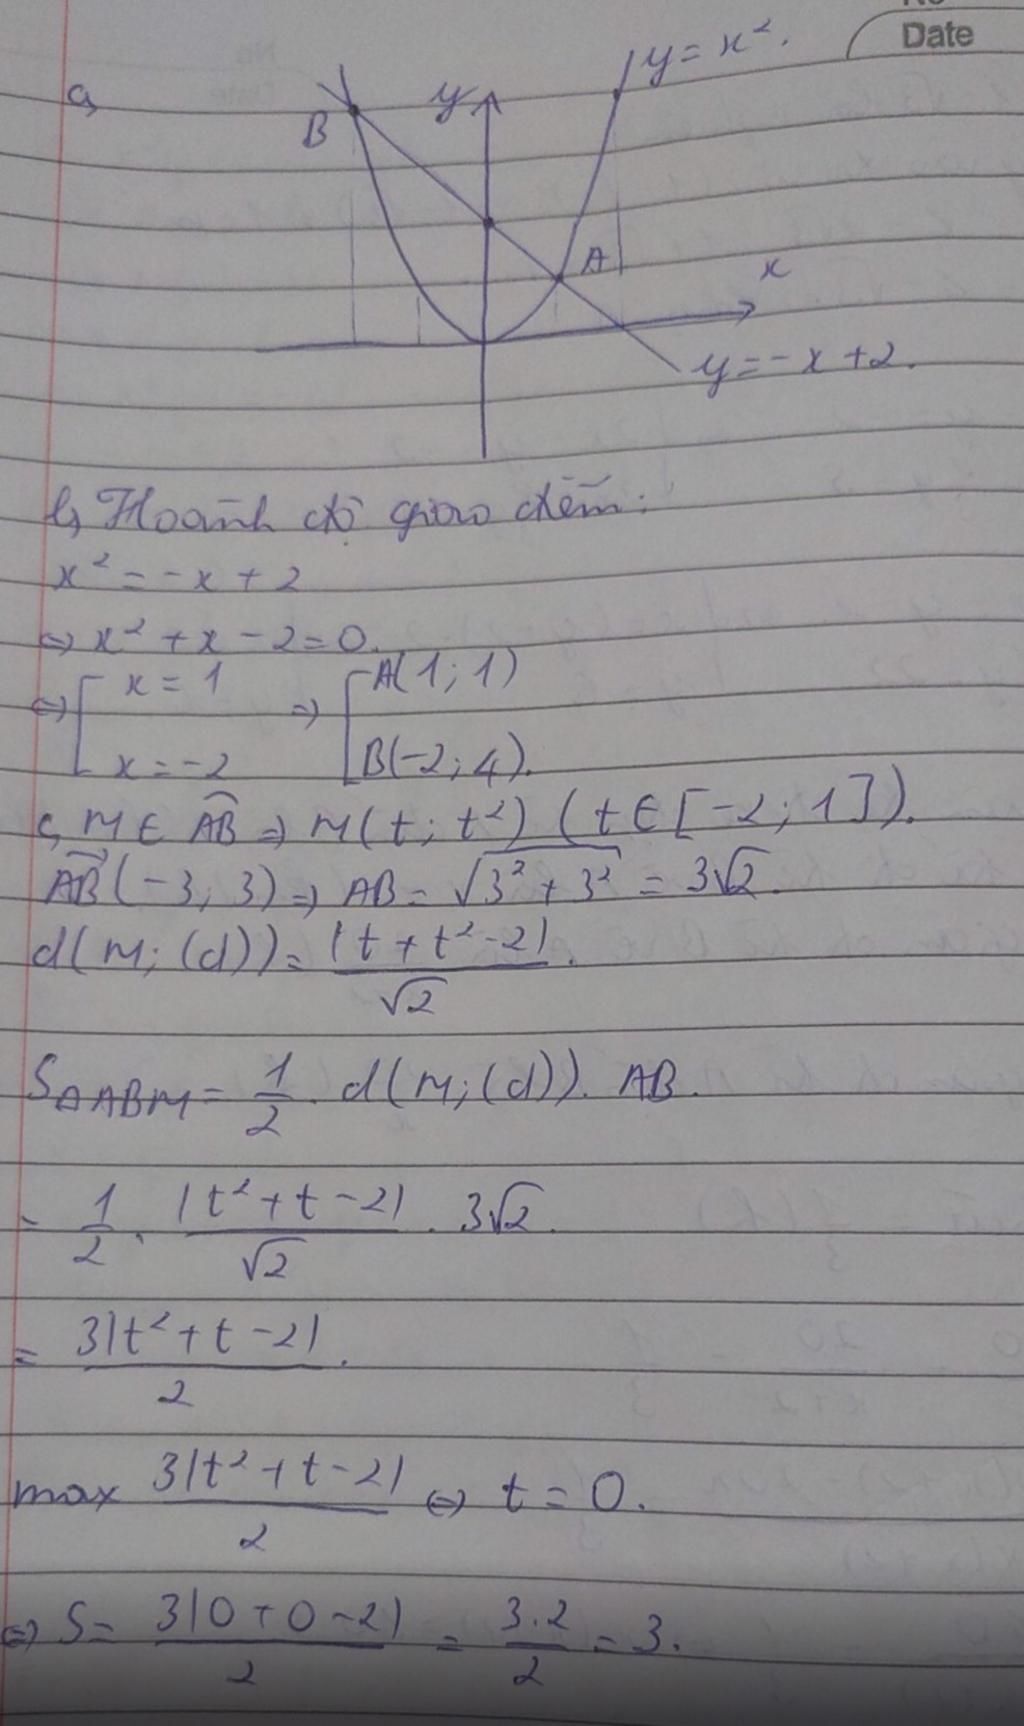 No
Date
a,
y = x².
y
B
A
x
y = -x + 2.
b, Hoành độ giao điểm:
x² = -x + 2
⇔ x² + x - 2 = 0.
⇔ [ x = 1 ⇒ [ A(1; 1)
x = -2 B(-2; 4).
c, M ∈ AB⌢ ⇒ M(t; t²) (t ∈ [-2; 1]).
AB→(-3; 3) ⇒ AB = √(3² + 3²) = 3√2.
d(M; (d)) = |t + t² - 2| / √2.
SΔABM = 1/2 . d(M; (d)). AB.
= 1/2 . |t² + t - 2| / √2 . 3√2.
= 3|t² + t - 2| / 2.
max 3|t² + t - 2| / 2 ⇔ t = 0.
⇔ S = 3|0 + 0 - 2| / 2 = 3.2 / 2 = 3.